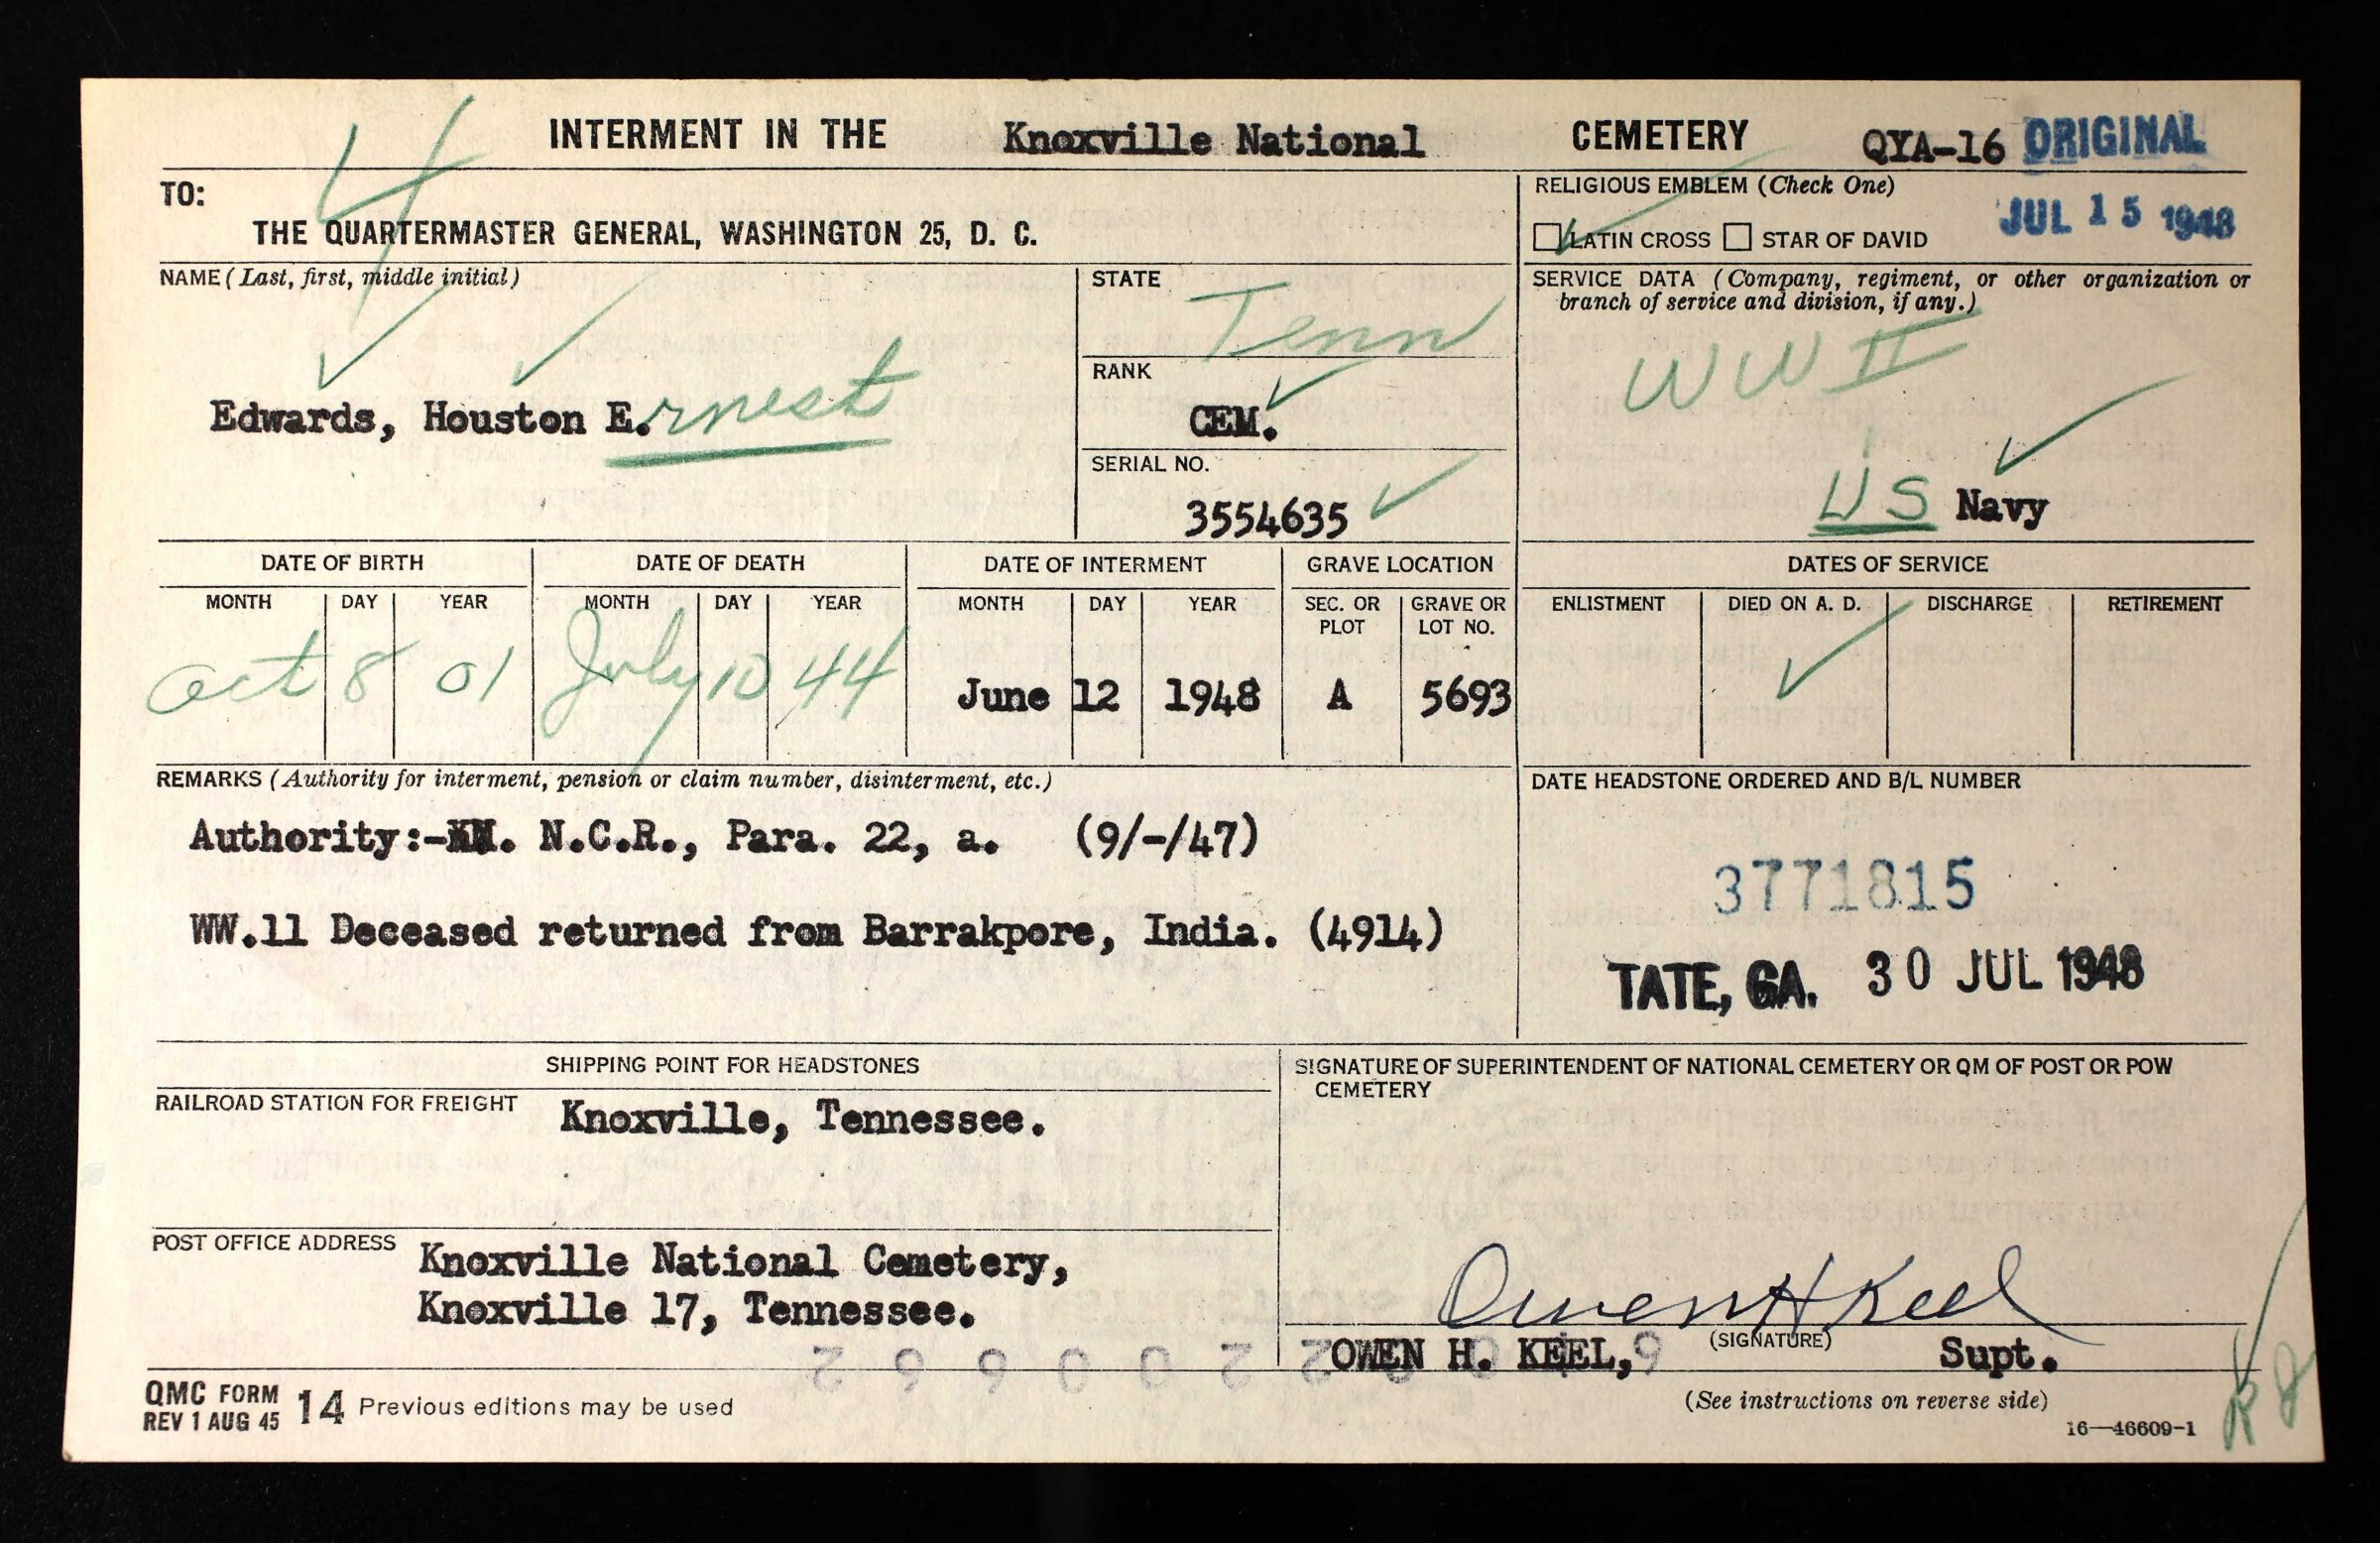 INTERMENT IN THE Knoxville National CEMETERY QYA-16 ORIGINAL
TO:
THE QUARTERMASTER GENERAL, WASHINGTON 25, D. C.
RELIGIOUS EMBLEM (Check One)
LATIN CROSS STAR OF DAVID
JUL 15 1948
NAME (Last, first, middle initial)
Edwards, Houston E.rnest
STATE
Tenn
RANK
CEM.
SERIAL NO.
3554635
SERVICE DATA (Company, regiment, or other organization or
branch of service and division, if any.)
WW II
US Navy
DATE OF BIRTH DATE OF DEATH DATE OF INTERMENT GRAVE LOCATION DATES OF SERVICE
MONTH DAY YEAR MONTH DAY YEAR MONTH DAY YEAR SEC. OR PLOT GRAVE OR LOT NO. ENLISTMENT DIED ON A. D. DISCHARGE RETIREMENT
Oct 8 01 July 10 44 June 12 1948 A 5693
REMARKS (Authority for interment, pension or claim number, disinterment, etc.)
Authority:- N.C.R., Para. 22, a. (9/-/47)
WW.11 Deceased returned from Barrakpore, India. (4914)
DATE HEADSTONE ORDERED AND B/L NUMBER
3771815
TATE, GA. 30 JUL 1948
SHIPPING POINT FOR HEADSTONES
RAILROAD STATION FOR FREIGHT Knoxville, Tennessee.
POST OFFICE ADDRESS Knoxville National Cemetery,
Knoxville 17, Tennessee.
SIGNATURE OF SUPERINTENDENT OF NATIONAL CEMETERY OR QM OF POST OR POW
CEMETERY
Owen H Keel
(SIGNATURE)
OWEN H. KEEL, Supt.
QMC FORM 14 Previous editions may be used
REV 1 AUG 45
(See instructions on reverse side)
16—46609-1